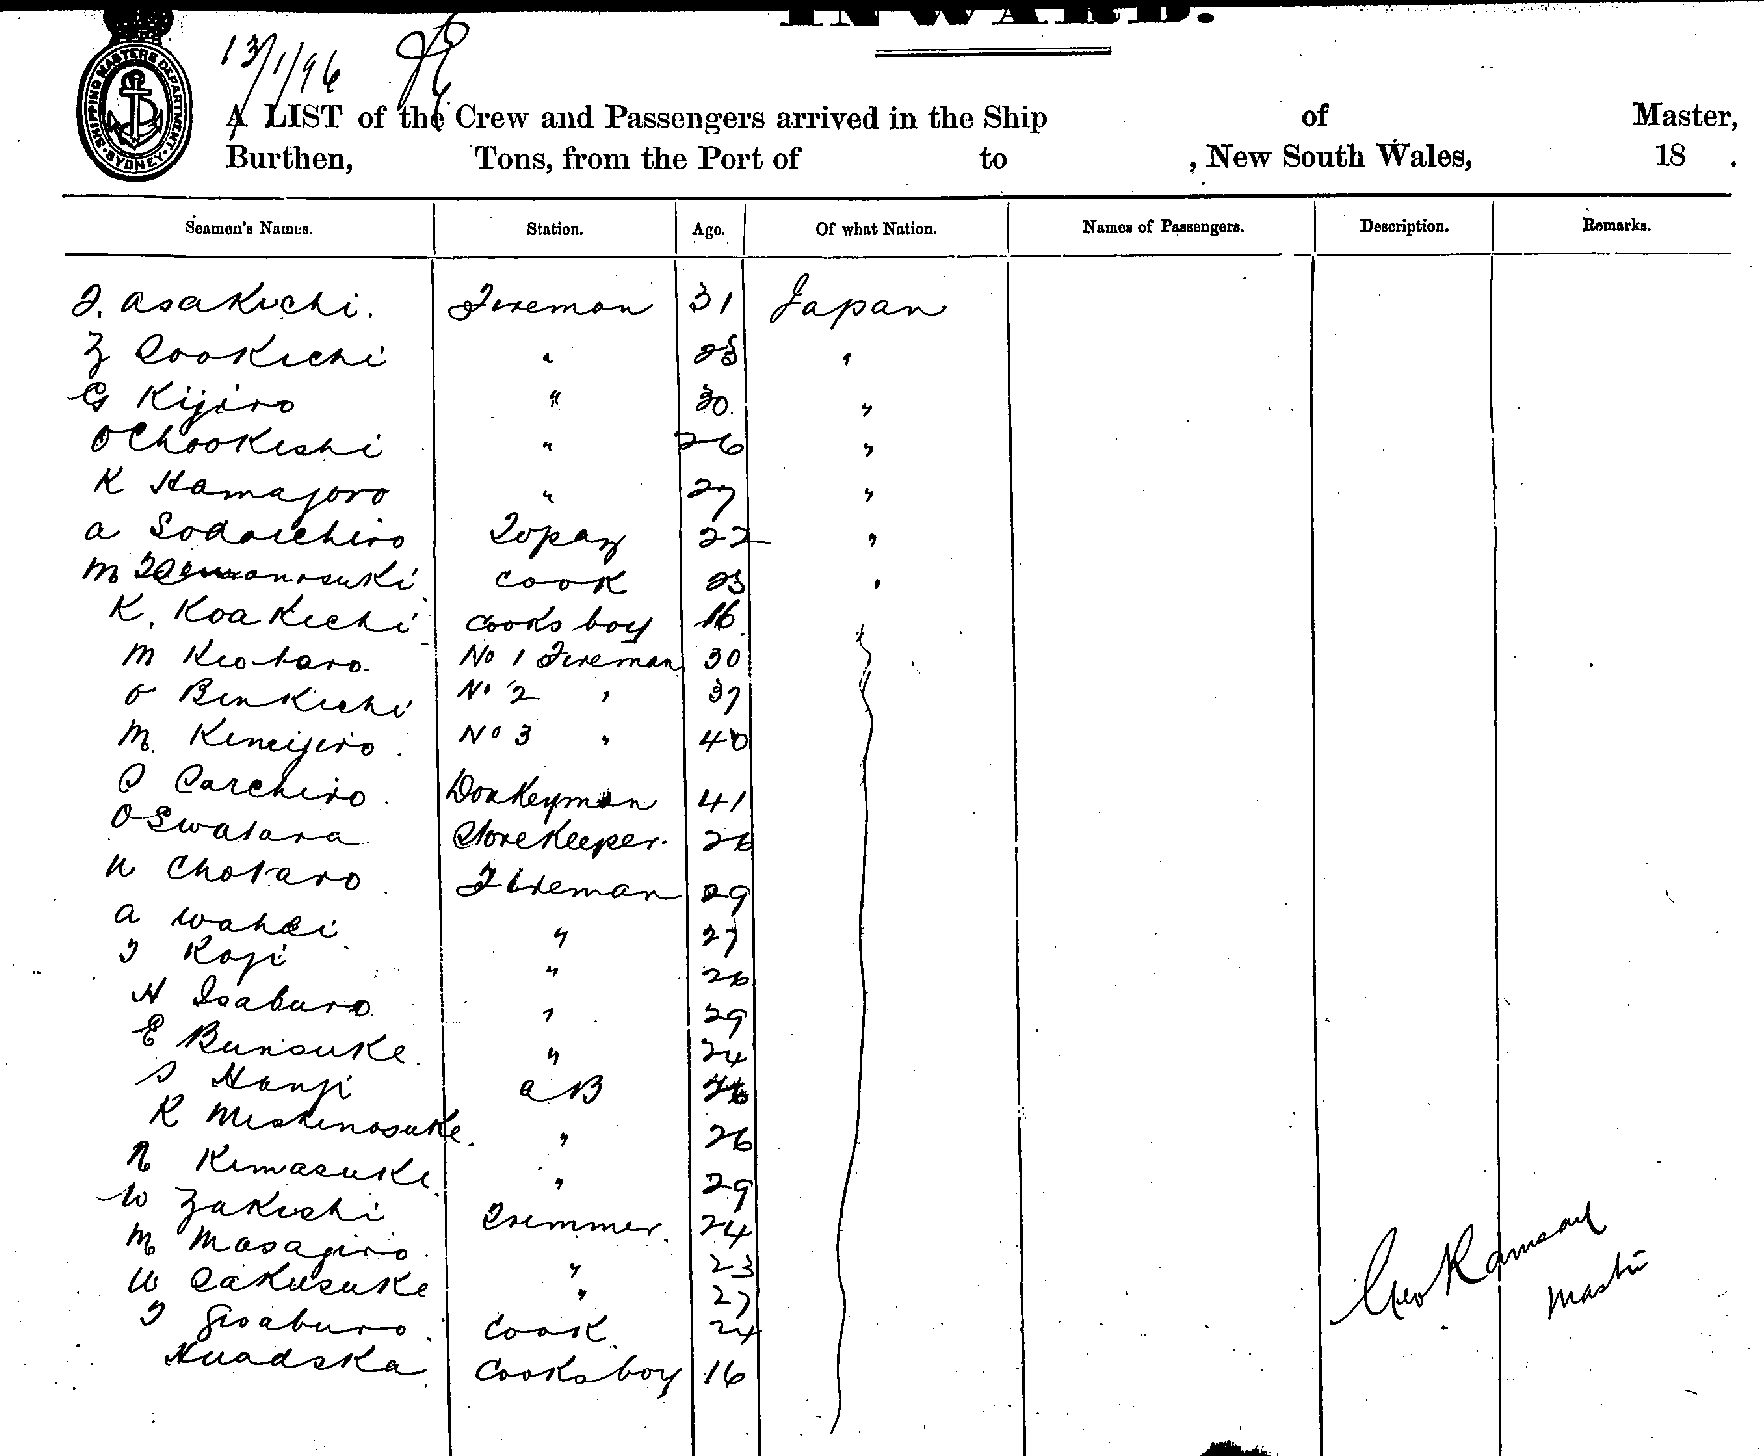 INWARD.
SHIPPING MASTERS DEPARTMENT SYDNEY
13/1/96
A LIST of the Crew and Passengers arrived in the Ship of Master,
Burthen, Tons, from the Port of to , New South Wales, 18 .
Seamen's Names. Station. Age. Of what Nation. Names of Passengers. Description. Remarks.
J. Asakichi. Fireman 31 Japan
Z Sookichi " 23 "
G Kijiro " 30 "
O Chookichi " 26 "
K Hamajoro " 27 "
A Sodaichiro Topaz 22 "
M cook 23 "
K. Koakichi cooks boy 16
M Kiotaro No 1 Fireman 30
O Benkichi No 2 " 37
M. Kimijiro. No 3 " 40
S Sarchiro. Donkeyman 41
O Swatara Storekeeper. 26
N Chotaro Fireman 29
A Wahei " 27
T Koji " 26
H Isaburo " 29
E Bunsuke. " 24
S Hanji AB 26
K Mishinosuke. " 26
N Kimasuke " 29
W Zakichi Trimmer. 24
M Masajiro. " 23
W Sakusuke " 27
T Gisaburo. Cook 24
Huadska Cooks boy 16
Geo Ramsay
Master